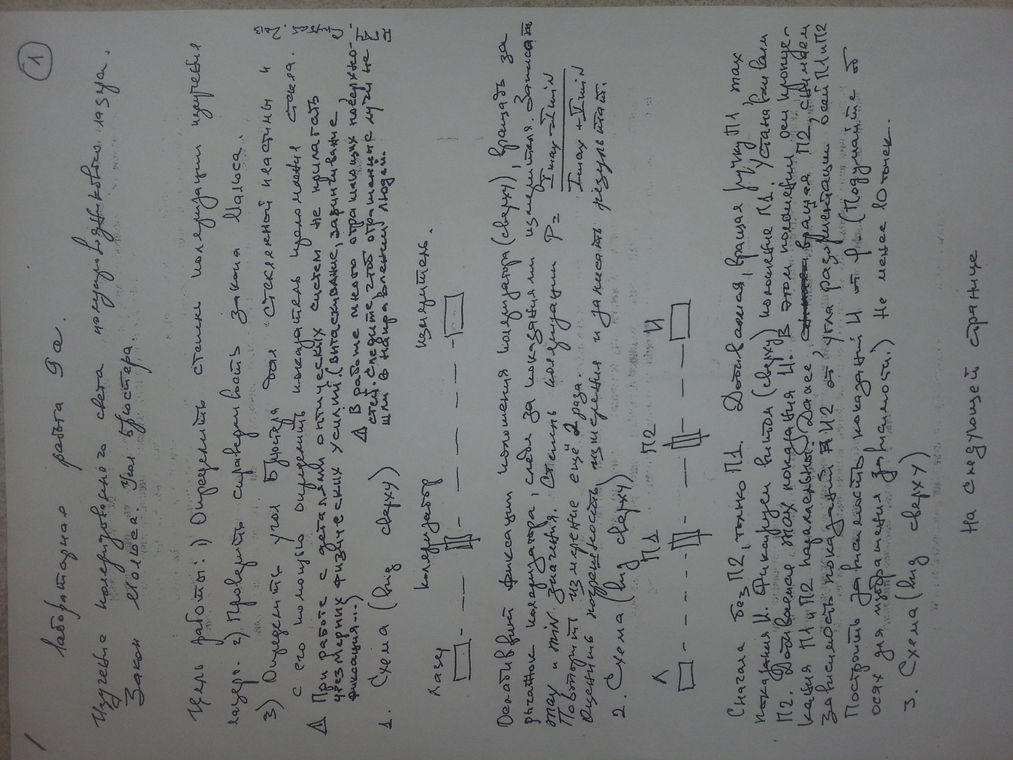 1
Лабораторная работа 9а.
Изучение поляризованного света полупроводникового лазера.
Закон Малюса. Угол Брюстера.
Цель работы: 1) Определить степень поляризации излучения
лазера. 2) Проверить справедливость закона Малюса.
3) Определить угол Брюстера для стеклянной пластины и
с его помощью определить показатель преломления стекла.
Δ При работе с деталями оптических систем не прилагать
чрезмерных физических усилий (вытаскивание, завинчивание,
фиксация...)
Δ В работе много отражающих поверхно-
стей. Следите, чтоб отражённые лучи не
шли в направлении людей.
1. Схема (вид сверху)
Лазер поляризатор измеритель.
Ослабив фиксации положения поляризатора (сверху), вращать за
рычажок поляризатора, следя за показаниями измерителя. Записать
max и min значения. Степень поляризации P = Imax-Imin
Imax+Imin
Повторить измерение ещё 2 раза.
Оценить погрешность измерения и записать результат.
2. Схема (вид сверху)
Л П1 П2 И
Сначала без П2, только П1. Добиваемся, вращая ручку П1 max
показания И. Фиксируем винтом (сверху) положение П1. Устанавливаем
П2. Добиваемся max показания И. В этом положении оси
П1 и П2 параллельны. Далее, вращая П2, снимаем
зависимость показаний И от угла разориентации осей П1 и П2
Построить зависимость показаний И от φ (Подумайте о
осях для изображения зависимости.) Не менее 10 точек.
3. Схема (вид сверху)
На следующей странице